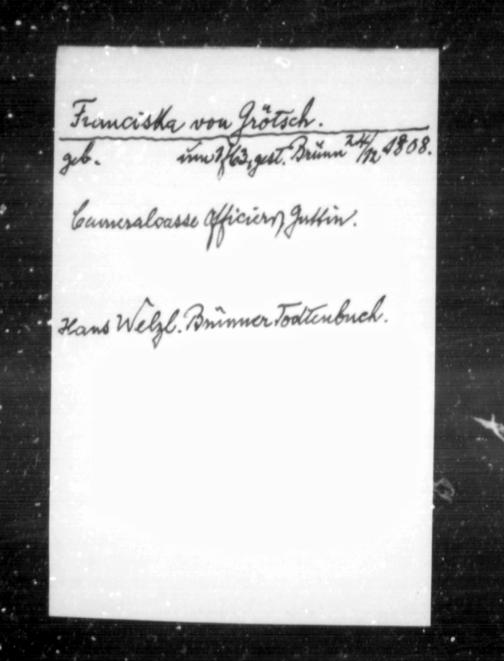 Franciska von Grötsch.
geb. um 1763, gest. Brünn 24/12 1808.
Cameralcasse Officiers Gattin.
Hans Welzl. Brünner Todtenbuch.